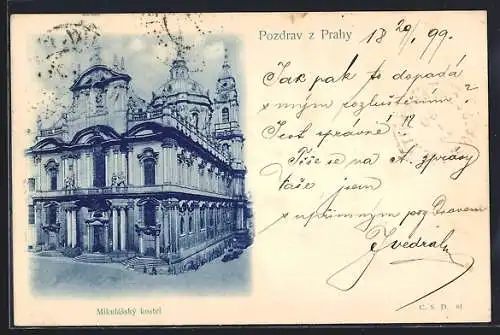 Pozdrav z Prahy
18 20/1 99.
Jak pak to dopadá
s mým rozluštěním?
Jest správné
Těše se na zprávy
Vaše, jsem
s upřímným pozdravem
Mikulášský kostel
C. S. D.